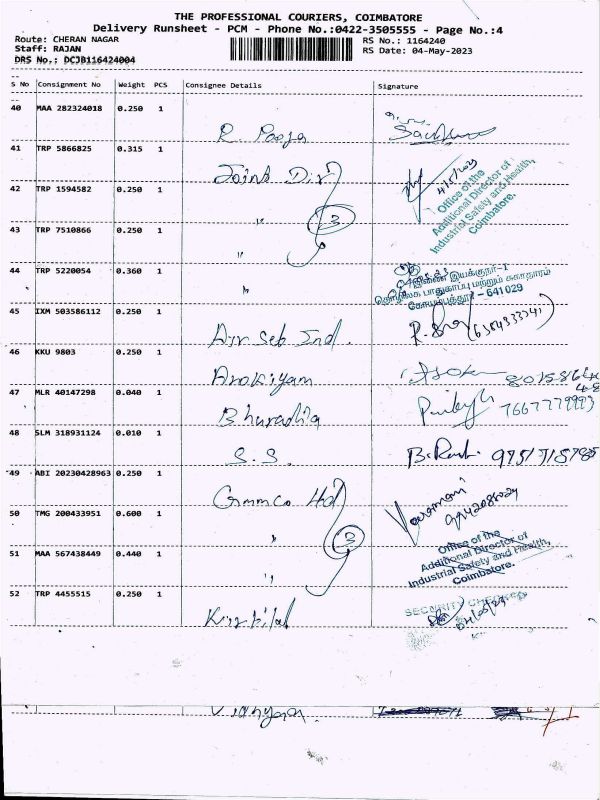 THE PROFESSIONAL COURIERS, COIMBATORE
Delivery Runsheet - PCM - Phone No.:0422-3505555 - Page No.:4
Route: CHERAN NAGAR
RS No.: 1164240
Staff: RAJAN
RS Date: 04-May-2023
DRS No.: DCJB116424004
S No Consignment No Weight PCS Consignee Details Signature
40 MAA 282324018 0.250 1
R. Pooja
41 TRP 5866825 0.315 1
Joint Dir
4/5/2023
42 TRP 1594582 0.250 1
Office of the
Additional Director of
Industrial Safety and Health,
Coimbatore.
"
3
43 TRP 7510866 0.250 1
"
44 TRP 5220054 0.360 1
இணை இயக்குநர்-I
தொழிலக பாதுகாப்பு மற்றும் சுகாதாரம்
கோயம்புத்தூர் - 641 029
"
45 IXM 503586112 0.250 1
Air Seb Ind.
46 KKU 9803 0.250 1
Arokiyam
47 MLR 40147298 0.040 1
7667779993
48 SLM 318931124 0.010 1
S. S.
49 ABI 20230428963 0.250 1
Gmmco Ltd
9942086024
50 TMG 200433951 0.600 1
"
3
Office of the
Additional Director of
Industrial Safety and Health,
Coimbatore.
51 MAA 567438449 0.440 1
"
52 TRP 4455515 0.250 1
SECURITY CHECKED